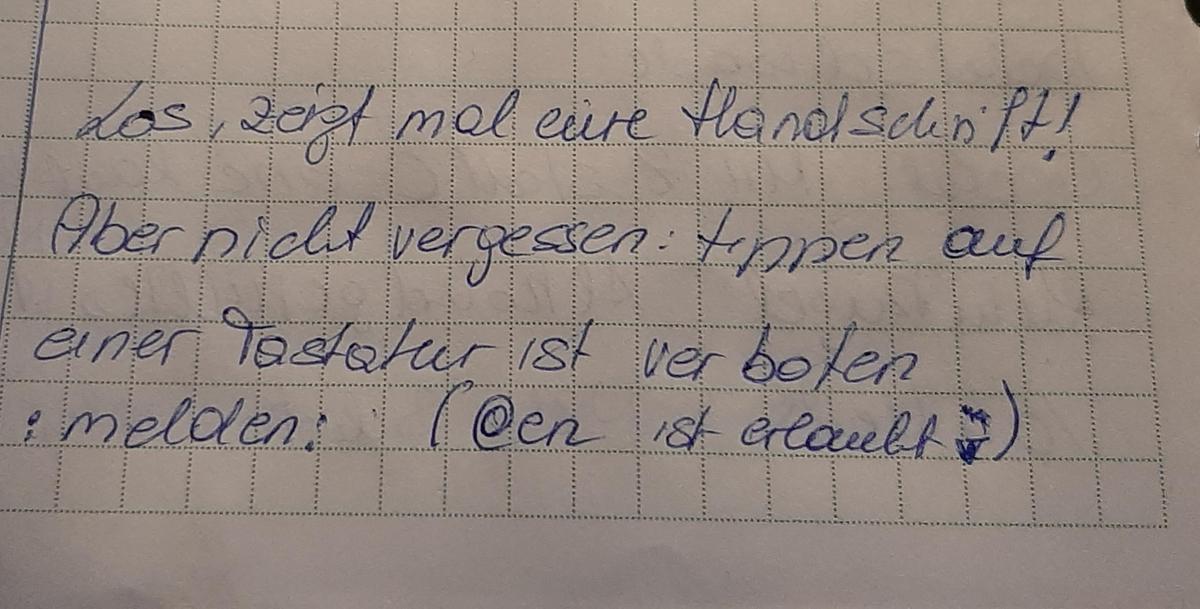 Los, zeigt mal eure Handschrift!
Aber nicht vergessen: tippen auf
einer Tastatur ist verboten
:melden: (@en ist erlaubt )